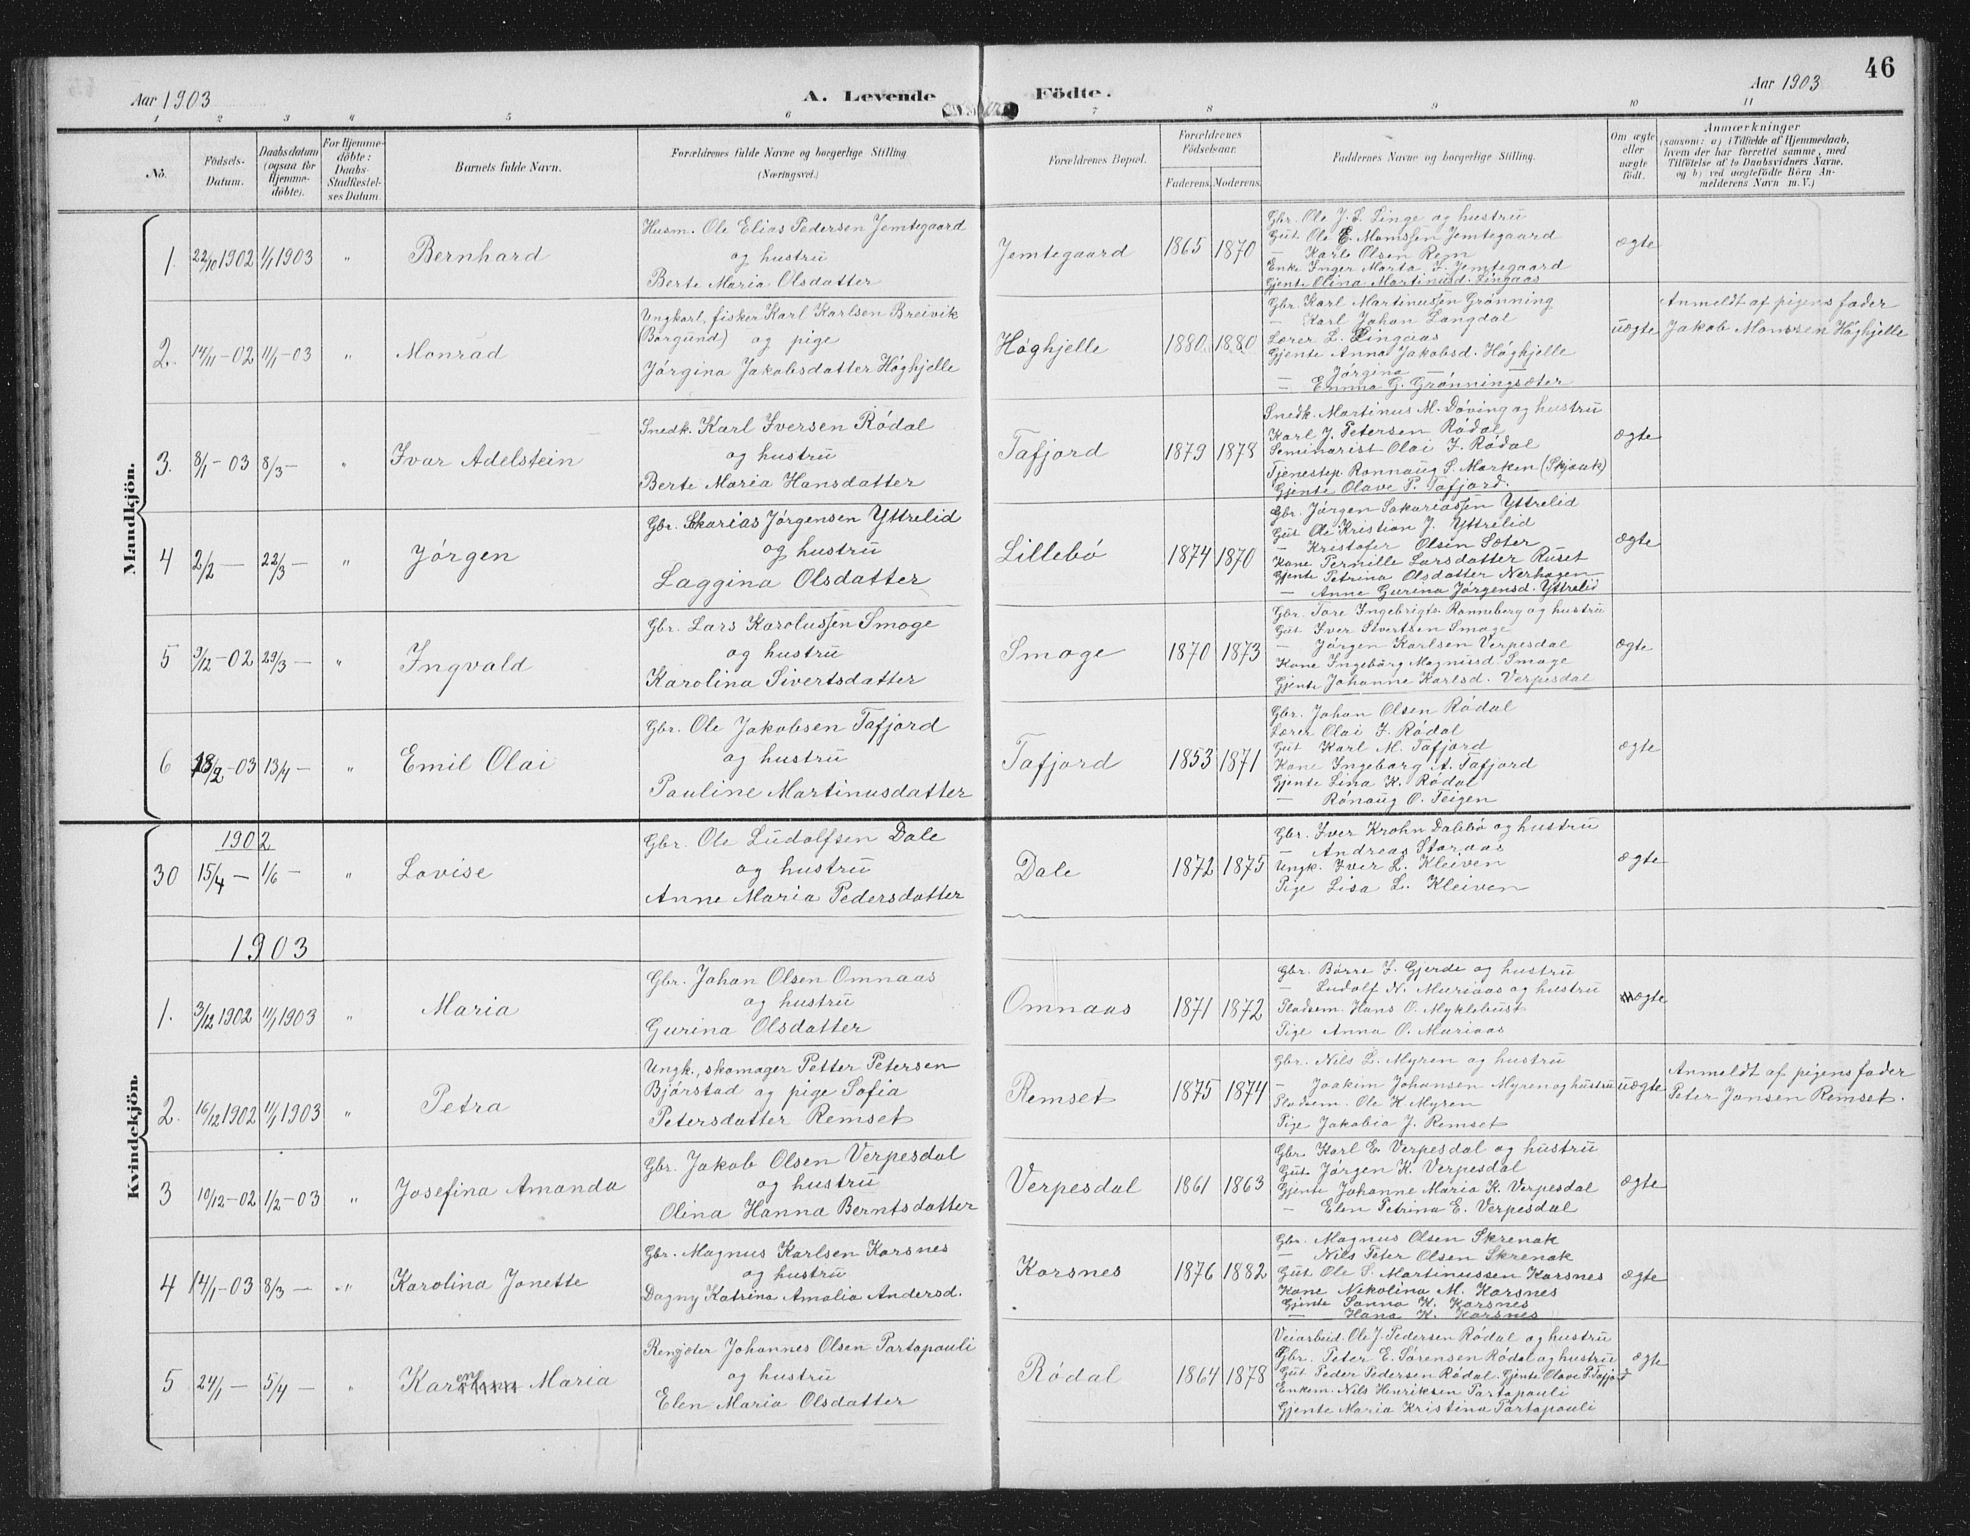 46
Aar 1903 A. Levende Födte. Aar 1903
1 2 3 4 5 6 7 8 9 10 11
No. Födsels-Datum. Daabsdatum (ogsaa for Hjemme-döbte). For Hjemme-döbte: Daabs-Stadfestel-ses Datum Barnets fulde Navn. Forældrenes fulde Navne og borgerlige Stilling (Næringsvei.) Forældrenes Bopæl. Forældrenes Födselsaar. Faderens. Moderens. Faddernes Navne og borgerlige Stilling. Om ægte eller uægte födt. Anmærkninger (saasom: a) i Tilfælde af Hjemmedaab, hvem der har forrettet samme, med Tilföielse af to Daabsvidners Navne, og b) ved uægtefödte Börn An-melderens Navn m.V.)
Mandkjön.
1. 22/10 1902 1/1 1903 " Bernhard
Husm. Ole Elias Pedersen Jemtegaard
og hustru
Berte Maria Olsdatter
Jemtegaard 1865 1870
Gbr. Ole J. L. Linge og hustru
Gut Ole E. Monssen Jemtegaard
— Karl Olsen Rem
Enke Inger Marta J. Jemtegaard
Gjente Olina Martinusd. Lingaas
ægte
2. 14/11 - 02 11/1 - 03 " Monrad
Ungkarl, fisker Karl Karlsen Breivik
(Borgund) og pige
Jørgina Jakobsdatter Höghjelle
Höghjelle 1880 1880
Gbr. Karl Martinussen Grønning
— Karl Johan Langdal
Lærer L. Lingaas
Gjente Anna Jakobsd. Höghjelle
— Jørgina —
— Emma G. Grönningsæter
uægte
Anmeldt af pigens fader
Jakob Monssen Höghjelle
3. 8/1 - 03 8/3 - " Ivar Adelstein
Snedk. Karl Iversen Rödal
og hustru
Berte Maria Hansdatter
Tafjord 1879 1878
Snedk. Martinus M. Döving og hustru
Karl J. Petersen Rödal
Seminarist Olai I. Rödal
Tjenestep. Rannaug S. Marken (Skjaak)
Gjente Olave P. Tafjord.
ægte
4 2/2 — 22/3 — " Jörgen
Gbr. Skarias Jørgensen Yttrelid
og hustru
Laggina Olsdatter
Lillebö 1874 1870
Gbr. Jørgen Sakariassen Yttrelid
Gut Ole Kristian J. Yttrelid
— Kristofer Olsen Sæter
Kone Pernille Larsdatter Ruset
Gjente Petrina Olsdatter Nerhagen
— Anne Gurina Jørgensd. Yttrelid
ægte
5 3/12 - 02 29/3 — " Ingvald
Gbr. Lars Karolussen Smoge
og hustru
Karolina Sivertsdatter
Smoge 1870 1873
Gbr. Tore Ingebrigts. Ronneberg og hustru
Gut Iver Sivertsen Smoge
— Jørgen Karlsen Verpesdal
Kone Ingeborg Magnusd. Smoge
Gjente Johanne Karlsd. Verpesdal
ægte
6 18/2 - 03 13/4 — " Emil Olai
Gbr. Ole Jakobsen Tafjord
og hustru
Pauline Martinusdatter
Tafjord 1853 1871
Gbr. Johan Olsen Rödal
Lærer Olai I. Rödal
Gut Karl M. Tafjord
Kone Ingeborg A. Tafjord
Gjente Lina K. Rødal
— Rönaug O. Teigen
ægte
Kvindekjön.
1902
30 15/4 — 1/6 — " Lovise
Gbr. Ole Ludolfsen Dale
og hustru
Anne Maria Pedersdatter
Dale 1872 1875
Gbr. Iver Krohn Dalebö og hustru
— Andreas Storaas
Ungk. Iver L. Kleiven
Pige Lisa L. Kleiven
ægte
1903
1. 3/12 1902 11/1 1903 " Maria
Gbr. Johan Olsen Omnaas
og hustru
Gurina Olsdatter
Omnaas 1871 1872
Gbr. Børre I. Gjerde og hustru
— Ludolf N. Muriaas og hustru
Pladsem. Hans O. Myklebust
Pige Anna O. Muriaas
ægte
2. 16/12 1902 11/1 1903 " Petra
Ungk., skomager Petter Petersen
Bjørstad og pige Sofia
Petersdatter Remset
Remset 1875 1874
Gbr. Nils L. Myren og hustru
— Joakim Johansen Myren og hustru
Pladsem. Ole K Myren
Pige Jakobia J. Remset
uægte
Anmeldt af pigens fader
Peter Jansen Remset.
3 10/12 - 02 1/2 - 03 " Josefina Amanda
Gbr. Jakob Olsen Verpesdal
og hustru
Olina Hanna Berntsdatter
Verpesdal 1861 1863
Gbr. Karl E. Verpesdal og hustru
Gut Jørgen K. Verpesdal
Gjente Johanne Maria K. Verpesdal
— Elen Petrina E. Verpesdal
ægte
4 14/1 - 03 8/3 — " Karolina Jonette
Gbr. Magnus Karlsen Korsnes
og hustru
Dagny Katrina Amalia Andersd.
Korsnes 1876 1882
Gbr. Magnus Olsen Skrenak
— Nils Peter Olsen Skrenak
Gut Ole S. Martinussen Korsnes
Kone Nikolina M. Korsnes
Gjente Sanna K. Korsnes
— Hana K. Korsnes
ægte
5 24/1 — 5/4 — " Karen Maria
Rengjeter Johannes Olsen Partapauli
og hustru
Elen Maria Olsdatter
Rödal 1864 1878
Veiarbeid. Ole J. Pedersen Rødal og hustru
Gbr. Peter E. Sørensen Rödal og hustru
Gut Peder Pedersen Rödal. Gjente Olave P. Tafjord
Enkem. Nils Henriksen Partapauli
Gjente Maria Kristina Partapauli
ægte